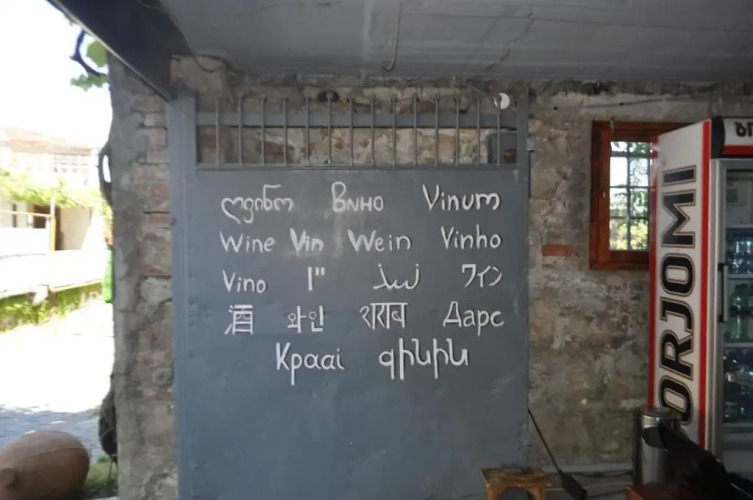 ღვინო вино Vinum
Wine Vin Wein Vinho
Vino נבيذ ワイン
酒 와인 शराब Дарс
Краαί գինին
BORJOMI